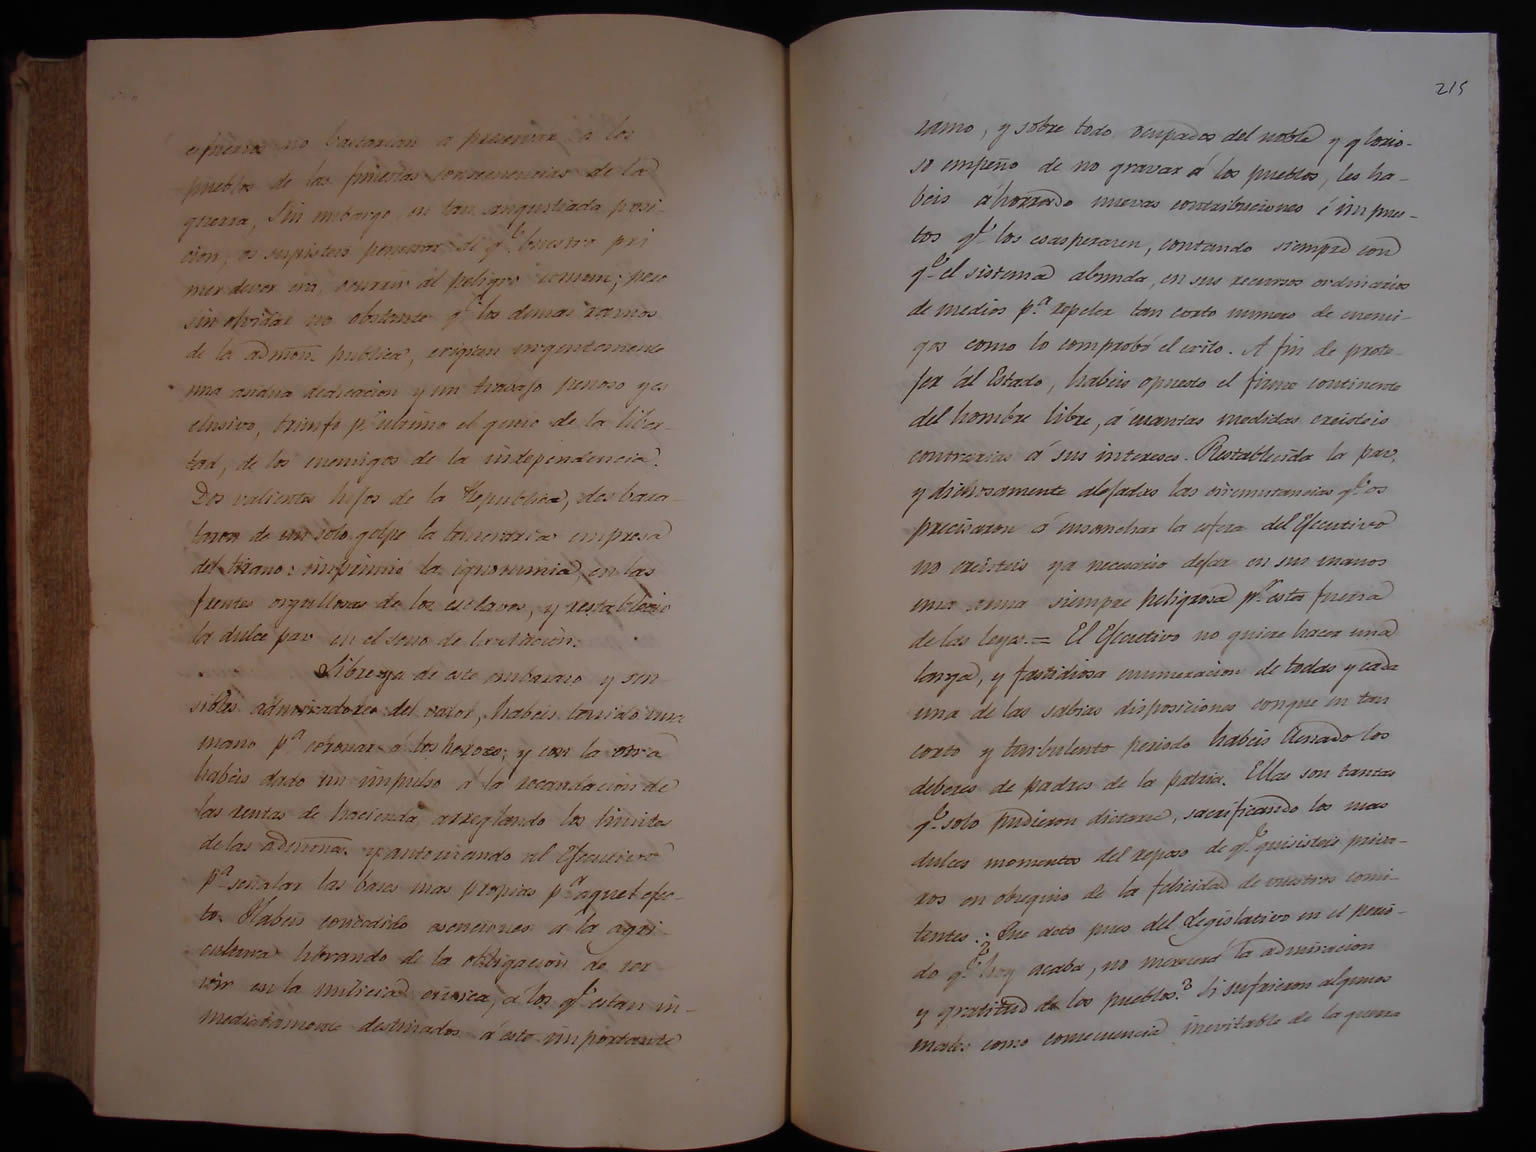 esfuerzos no bastarian a preservar a los
pueblos de las funestas consecuencias de la
guerra, Sin embargo en tan angustiada posi-
cion, os supisteis penetrar de qe. buestro pri
mer dever era, ocurrir al peligro comun; pero
sin olvidar no obstante qe. los demas ramos
de la admon. publica, exigian urgentemente
una asidua dedicacion y un trabajo penoso y es
clusivo, triunfó pr. ultimo el genio de la liber-
tad, de los enemigos de la independencia.
Dos valientes hijos de la Republica, desbara-
taron de un solo golpe la temeraria empresa
del tirano: imprimió la ignominia, en las
frentes orgullosas de los esclavos, y restablecio
la dulce paz en el seno de la Nación.
Libre ya de este embarazo y sen
sibles admiradores del valor, habeis tenido una
mano pa. coronar á los heroes; y con la otra
habeis dado un impulso a la recaudacion de
las rentas de hacienda arreglando los limites
de las admones. y autorizando al Ejecutivo
pa. señalar las bases mas propias pa. aquel efec-
to. Habeis concedido esenciones á la agri
cultura librando de la obligacion de ser
vir en la milicia civica, á los qe. estan in-
mediatamente destinados á este importante
215
ramo, y sobre todo ocupados del noble y glorio-
so empeño de no gravar á los pueblos, les ha-
beis áhorrado nuevas contribuciones é impues-
tos qe. los exasperasen, contando siempre con
qe. el sistema abunda, en sus recursos ordinarios
de medios pa. repeler tan corto numero de enemi-
gos como lo comprobó el exito. A fin de prote-
jer ál Estado, habeis opuesto el firme continente
del hombre libre, á cuantas medidas creisteis
contrarias á sus intereses. Restablecida la paz,
y dichosamente alejadas las circunstancias qe. os
precisaron á ensanchar la esfera del Ejecutivo
no creisteis ya necesario dejar en sus manos
una arma siempre peligrosa pr. esta fuera
de las leyes. = El Ejecutivo no quiere hacer una
larga, y fastidiosa enumeracion de todas y cada
una de las sabias disposiciones conque en tan
corto y turbulento periodo habeis llenado los
deberes de padres de la patria. Ellas son tantas
qe. solo pudieron dictarse, sacrificando los mas
dulces momentos del reposo de qe. quisisteis priva-
ros en obsequio de la felicidad de vuestros comi-
tentes. ¿Que acto pues del Legislativo en el perio-
do qe. hoy acaba, no merecerá la admiracion
y gratitud de los pueblos? Si sufrieron algunos
males como consecuencia inevitable de la guerra